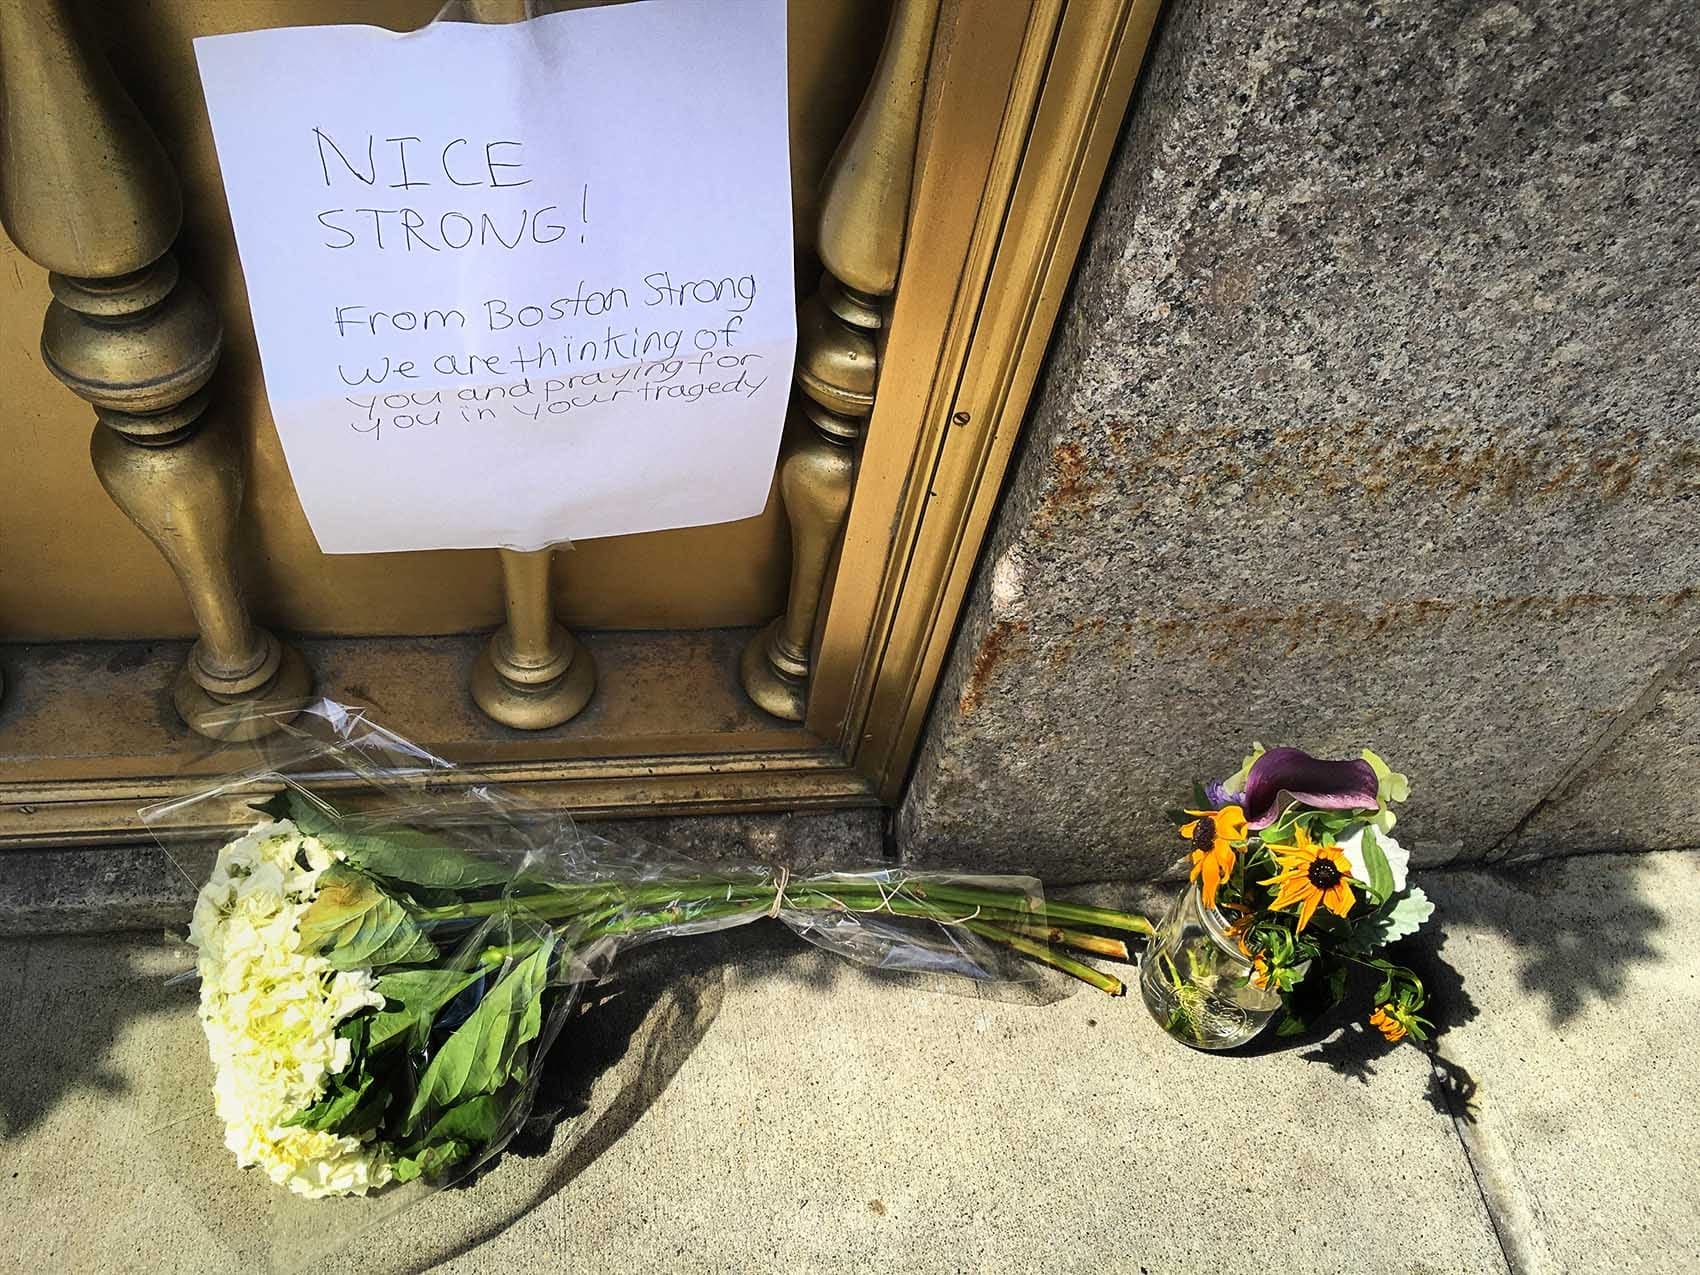 NICE
STRONG!
From Boston Strong
We are thinking of
you and praying for
you in your tragedy